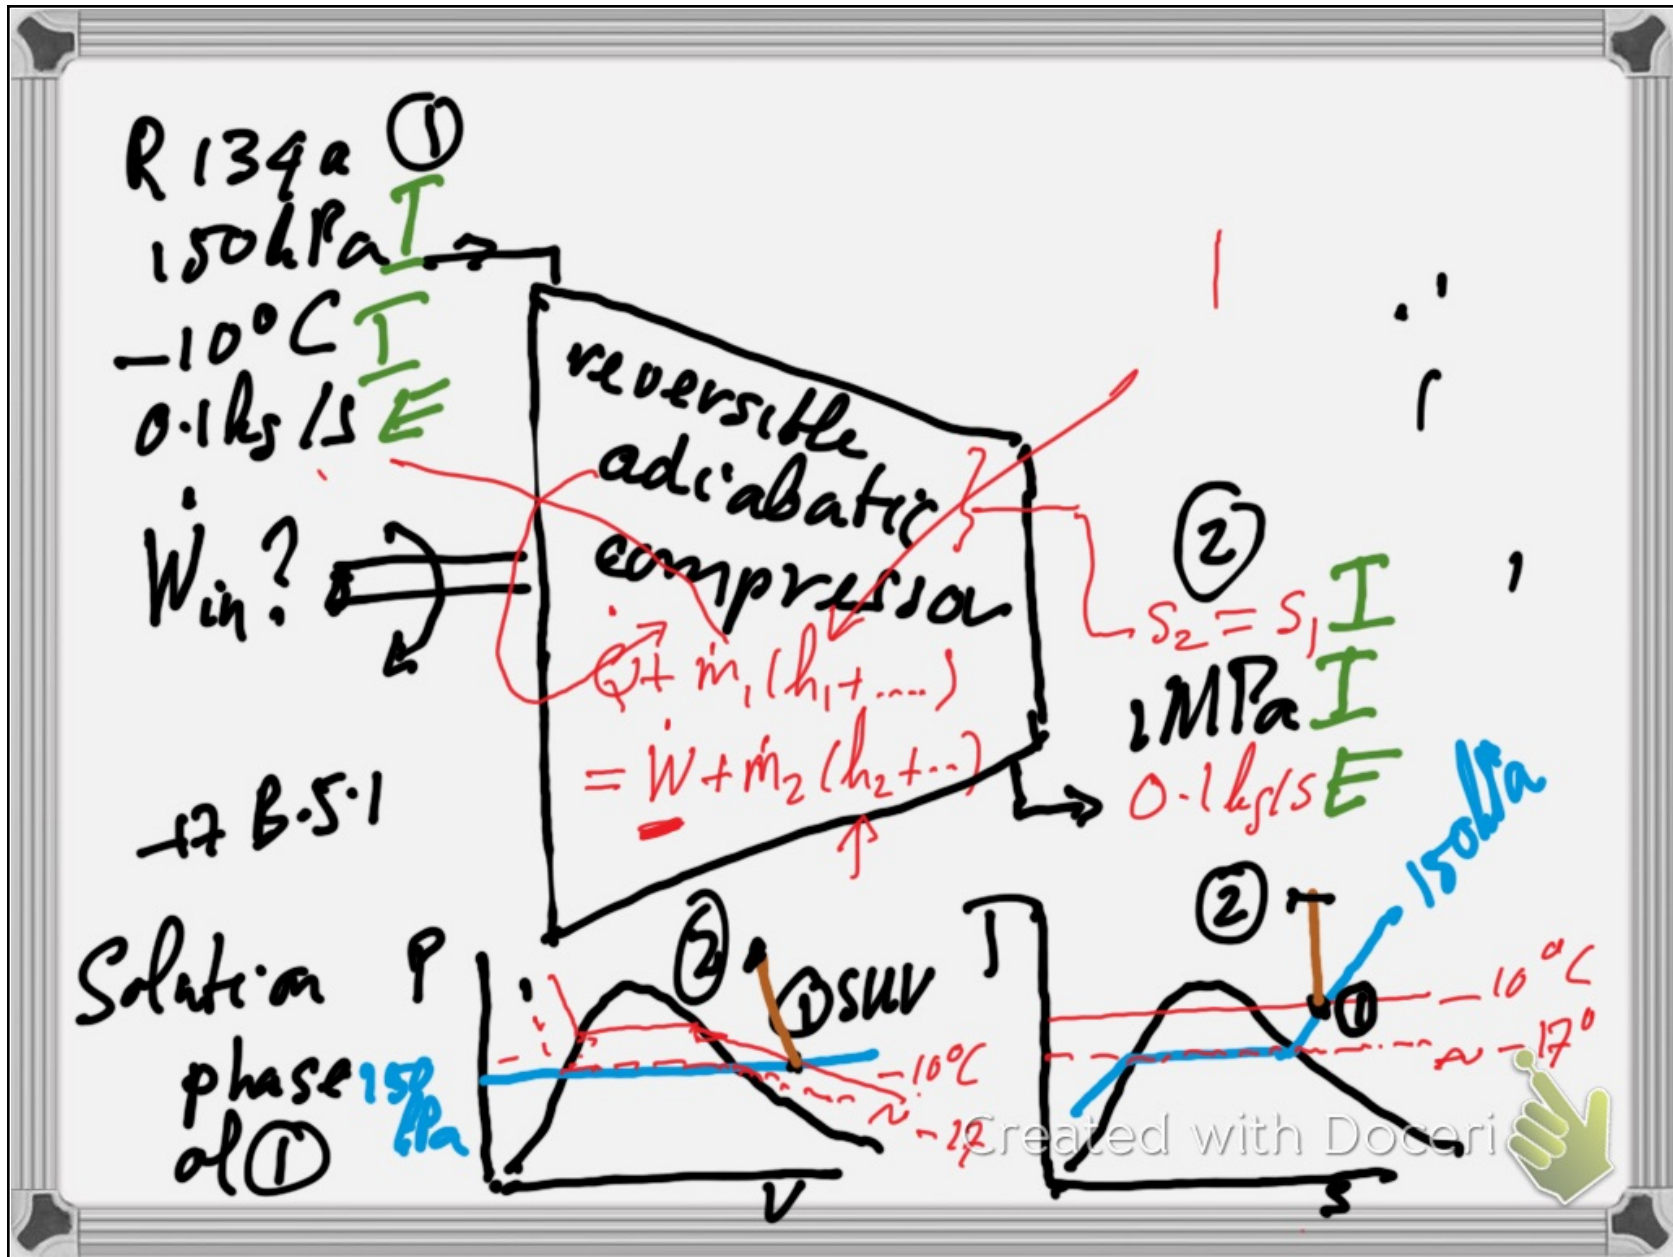 R134a ①
150kPa I
-10°C I
0.1kg/s E
Ẇin?
reversible
adiabatic
compressor
Q̇ + ṁ₁(h₁+....)
= Ẇ + ṁ₂(h₂+..)
②
S₂ = S₁ I
1MPa I
0.1kg/s E
-17 B.5.1
Solution
phase
of ①
P
150
kPa
②
① SUV
-10°C
~ -17
V
T
②
150kPa
-10°C
①
~ -17°
S
Created with Doceri